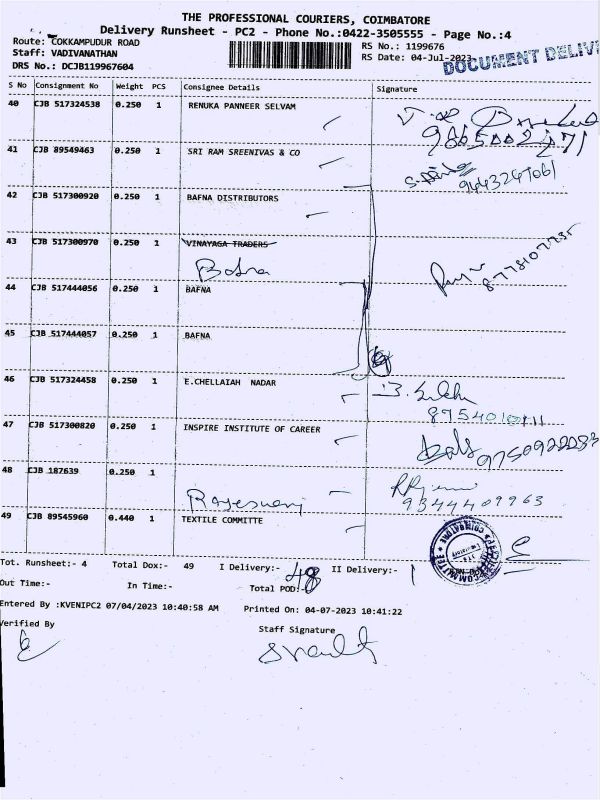 THE PROFESSIONAL COURIERS, COIMBATORE
Delivery Runsheet - PC2 - Phone No.:0422-3505555 - Page No.:4
Route: COKKAMPUDUR ROAD
RS No.: 1199676
Staff: VADIVANATHAN
RS Date: 04-Jul-2023
DOCUMENT DELIV
DRS No.: DCJB119967604
S No Consignment No Weight PCS Consignee Details Signature
40 CJB 517324538 0.250 1 RENUKA PANNEER SELVAM
41 CJB 89549463 0.250 1 SRI RAM SREENIVAS & CO
9443267061
42 CJB 517300920 0.250 1 BAFNA DISTRIBUTORS
43 CJB 517300970 0.250 1 VINAYAGA TRADERS
Bafna
8778107735
44 CJB 517444056 0.250 1 BAFNA
45 CJB 517444057 0.250 1 BAFNA
46 CJB 517324458 0.250 1 E.CHELLAIAH NADAR
47 CJB 517300820 0.250 1 INSPIRE INSTITUTE OF CAREER
48 CJB 187639 0.250 1
Rajeswari
9344409963
49 CJB 89545960 0.440 1 TEXTILE COMMITTE
Tot. Runsheet:- 4 Total Dox:- 49 I Delivery:- 48 II Delivery:- 1
Out Time:- In Time:- Total POD:-
Entered By :KVENIPC2 07/04/2023 10:40:58 AM Printed On: 04-07-2023 10:41:22
Verified By
Staff Signature